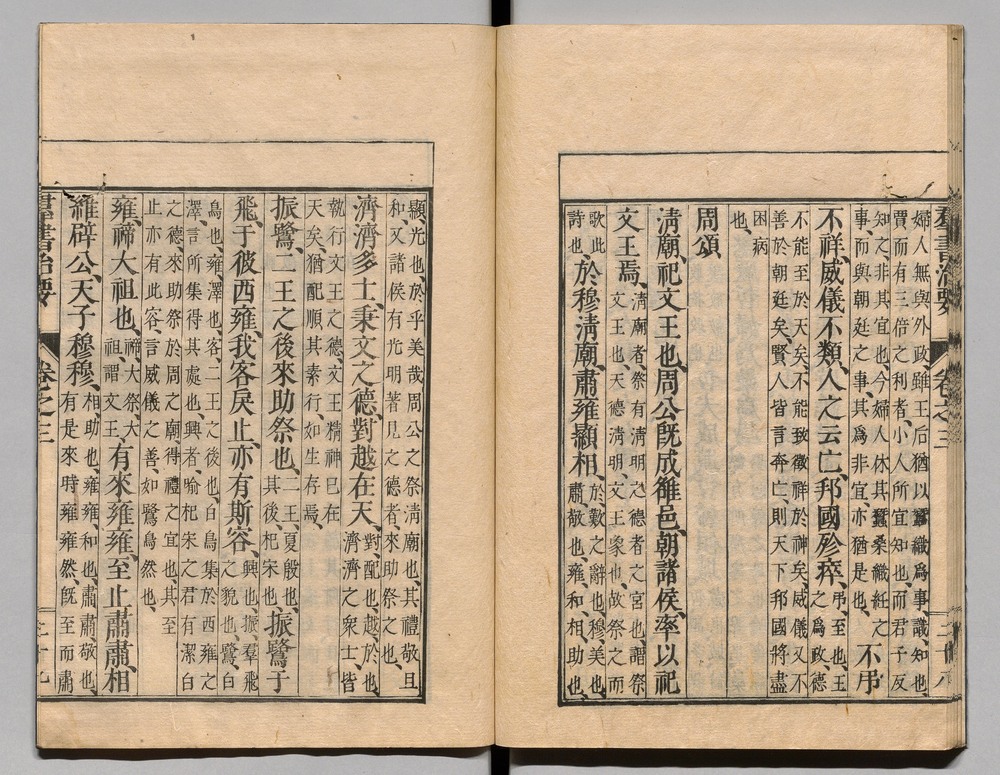 羣書治要 卷之三 二十八
婦人無與外政、雖王后猶以蠶織爲事、識知也、
賈而有三倍之利者、小人所宜知也、而君子反
知之、非其宜也、今婦人休其蠶桑織紝之
事、而與朝廷之事、其爲非宜亦猶是也、
不弔
不祥、威儀不類、人之云亡、邦國殄瘁、
弔、至也、王
之爲政德
不能至於天矣、不能致徵祥於神矣、威儀又不
善於朝廷矣、賢人皆言奔亡、則天下邦國將盡
困病
也、
周頌
淸廟、祀文王也、周公旣成雒邑、朝諸侯、率以祀
文王焉、
淸廟者、祭有淸明之德者之宮也、謂祭
文王也、天德淸明、文王象也、故祭之而
歌此
詩也、
於穆淸廟、肅雍顯相、
於、歎之辭也、穆、美也、
肅、敬也、雍、和、相、助也、
顯、光也、於乎美哉、周公之祭淸廟也、其禮敬且
和、又諸侯有光明著見之德者、來助祭之也、
濟濟多士、秉文之德、對越在天、
對、配也、越、於也、
濟濟之衆士、皆
執行文王之德、文王精神已在
天矣、猶配順其素行、如生存焉、
振鷺、二王之後來助祭也、
二王、夏殷也、
其後、杞宋也、
振鷺于
飛、于彼西雍、我客戾止、亦有斯容、
興也、振、羣飛
之貌也、鷺、白
鳥也、雍、澤也、客、二王之後也、白鳥集於西雍之
澤、言所集得其處也、興者、喻杞宋之君有潔白
之德、來助祭於周之廟、得禮之宜也、其至
止亦有此容、言威儀之善、如鷺鳥然也、
雍、禘大祖也、
禘、大祭、大
祖、謂文王、
有來雍雍、至止肅肅、相
維辟公、天子穆穆、
相、助也、雍雍、和也、肅肅、敬也、
有是來時雍雍然、旣至而肅
羣書治要 卷之三 二十九